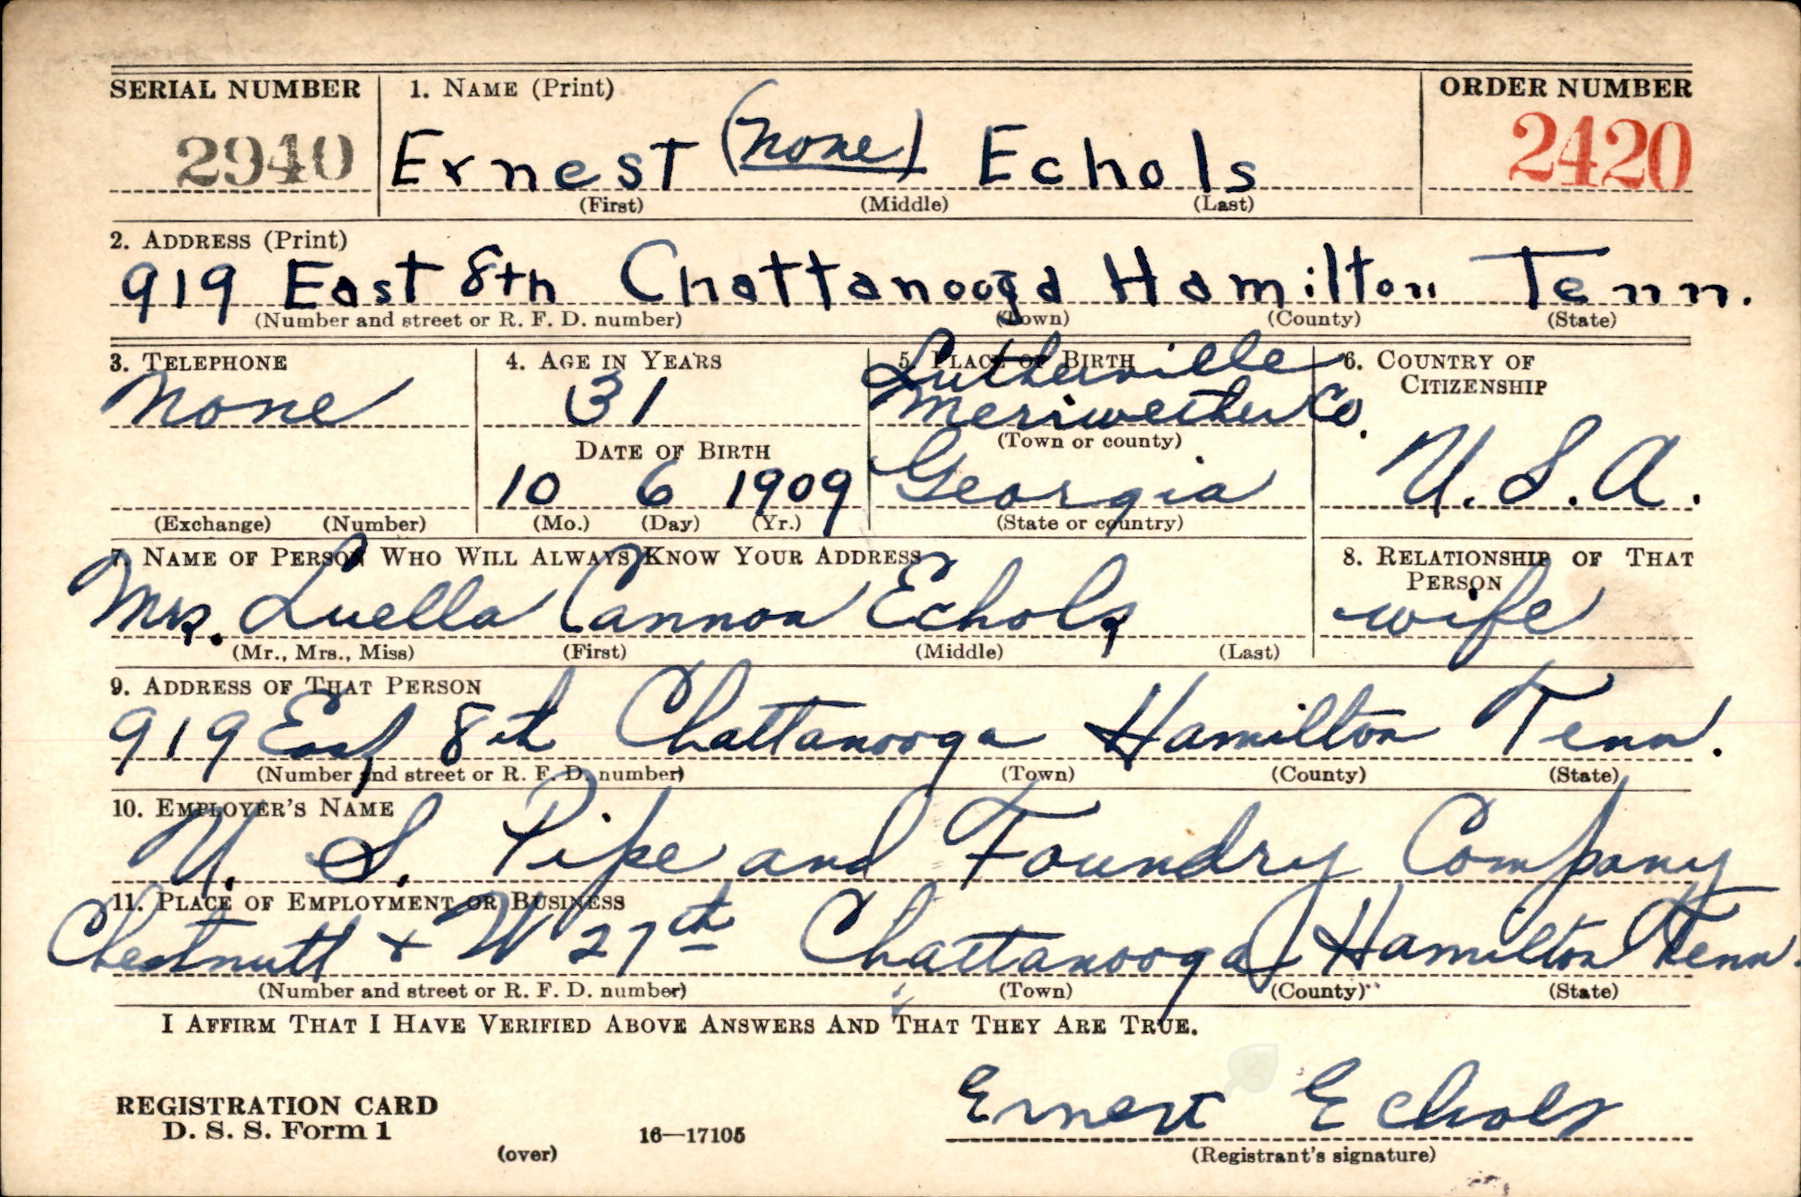 SERIAL NUMBER 1. NAME (Print) ORDER NUMBER
2940 Ernest (None) Echols 2420
(First) (Middle) (Last)
2. ADDRESS (Print)
919 East 8th Chattanooga Hamilton Tenn.
(Number and street or R. F. D. number) (Town) (County) (State)
3. TELEPHONE 4. AGE IN YEARS 5. PLACE OF BIRTH 6. COUNTRY OF CITIZENSHIP
None 31 Lutherville
Meriwether Co.
DATE OF BIRTH (Town or county)
10 6 1909 Georgia U.S.A.
(Exchange) (Number) (Mo.) (Day) (Yr.) (State or country)
7. NAME OF PERSON WHO WILL ALWAYS KNOW YOUR ADDRESS 8. RELATIONSHIP OF THAT PERSON
Mrs. Luella Cannon Echols wife
(Mr., Mrs., Miss) (First) (Middle) (Last)
9. ADDRESS OF THAT PERSON
919 East 8th Chattanooga Hamilton Tenn.
(Number and street or R. F. D. number) (Town) (County) (State)
10. EMPLOYER'S NAME
U. S. Pipe and Foundry Company
11. PLACE OF EMPLOYMENT OR BUSINESS
Chestnutt + W 27th Chattanooga Hamilton Tenn.
(Number and street or R. F. D. number) (Town) (County) (State)
I AFFIRM THAT I HAVE VERIFIED ABOVE ANSWERS AND THAT THEY ARE TRUE.
Ernest Echols
REGISTRATION CARD
D. S. S. Form 1 16—17105
(over) (Registrant's signature)